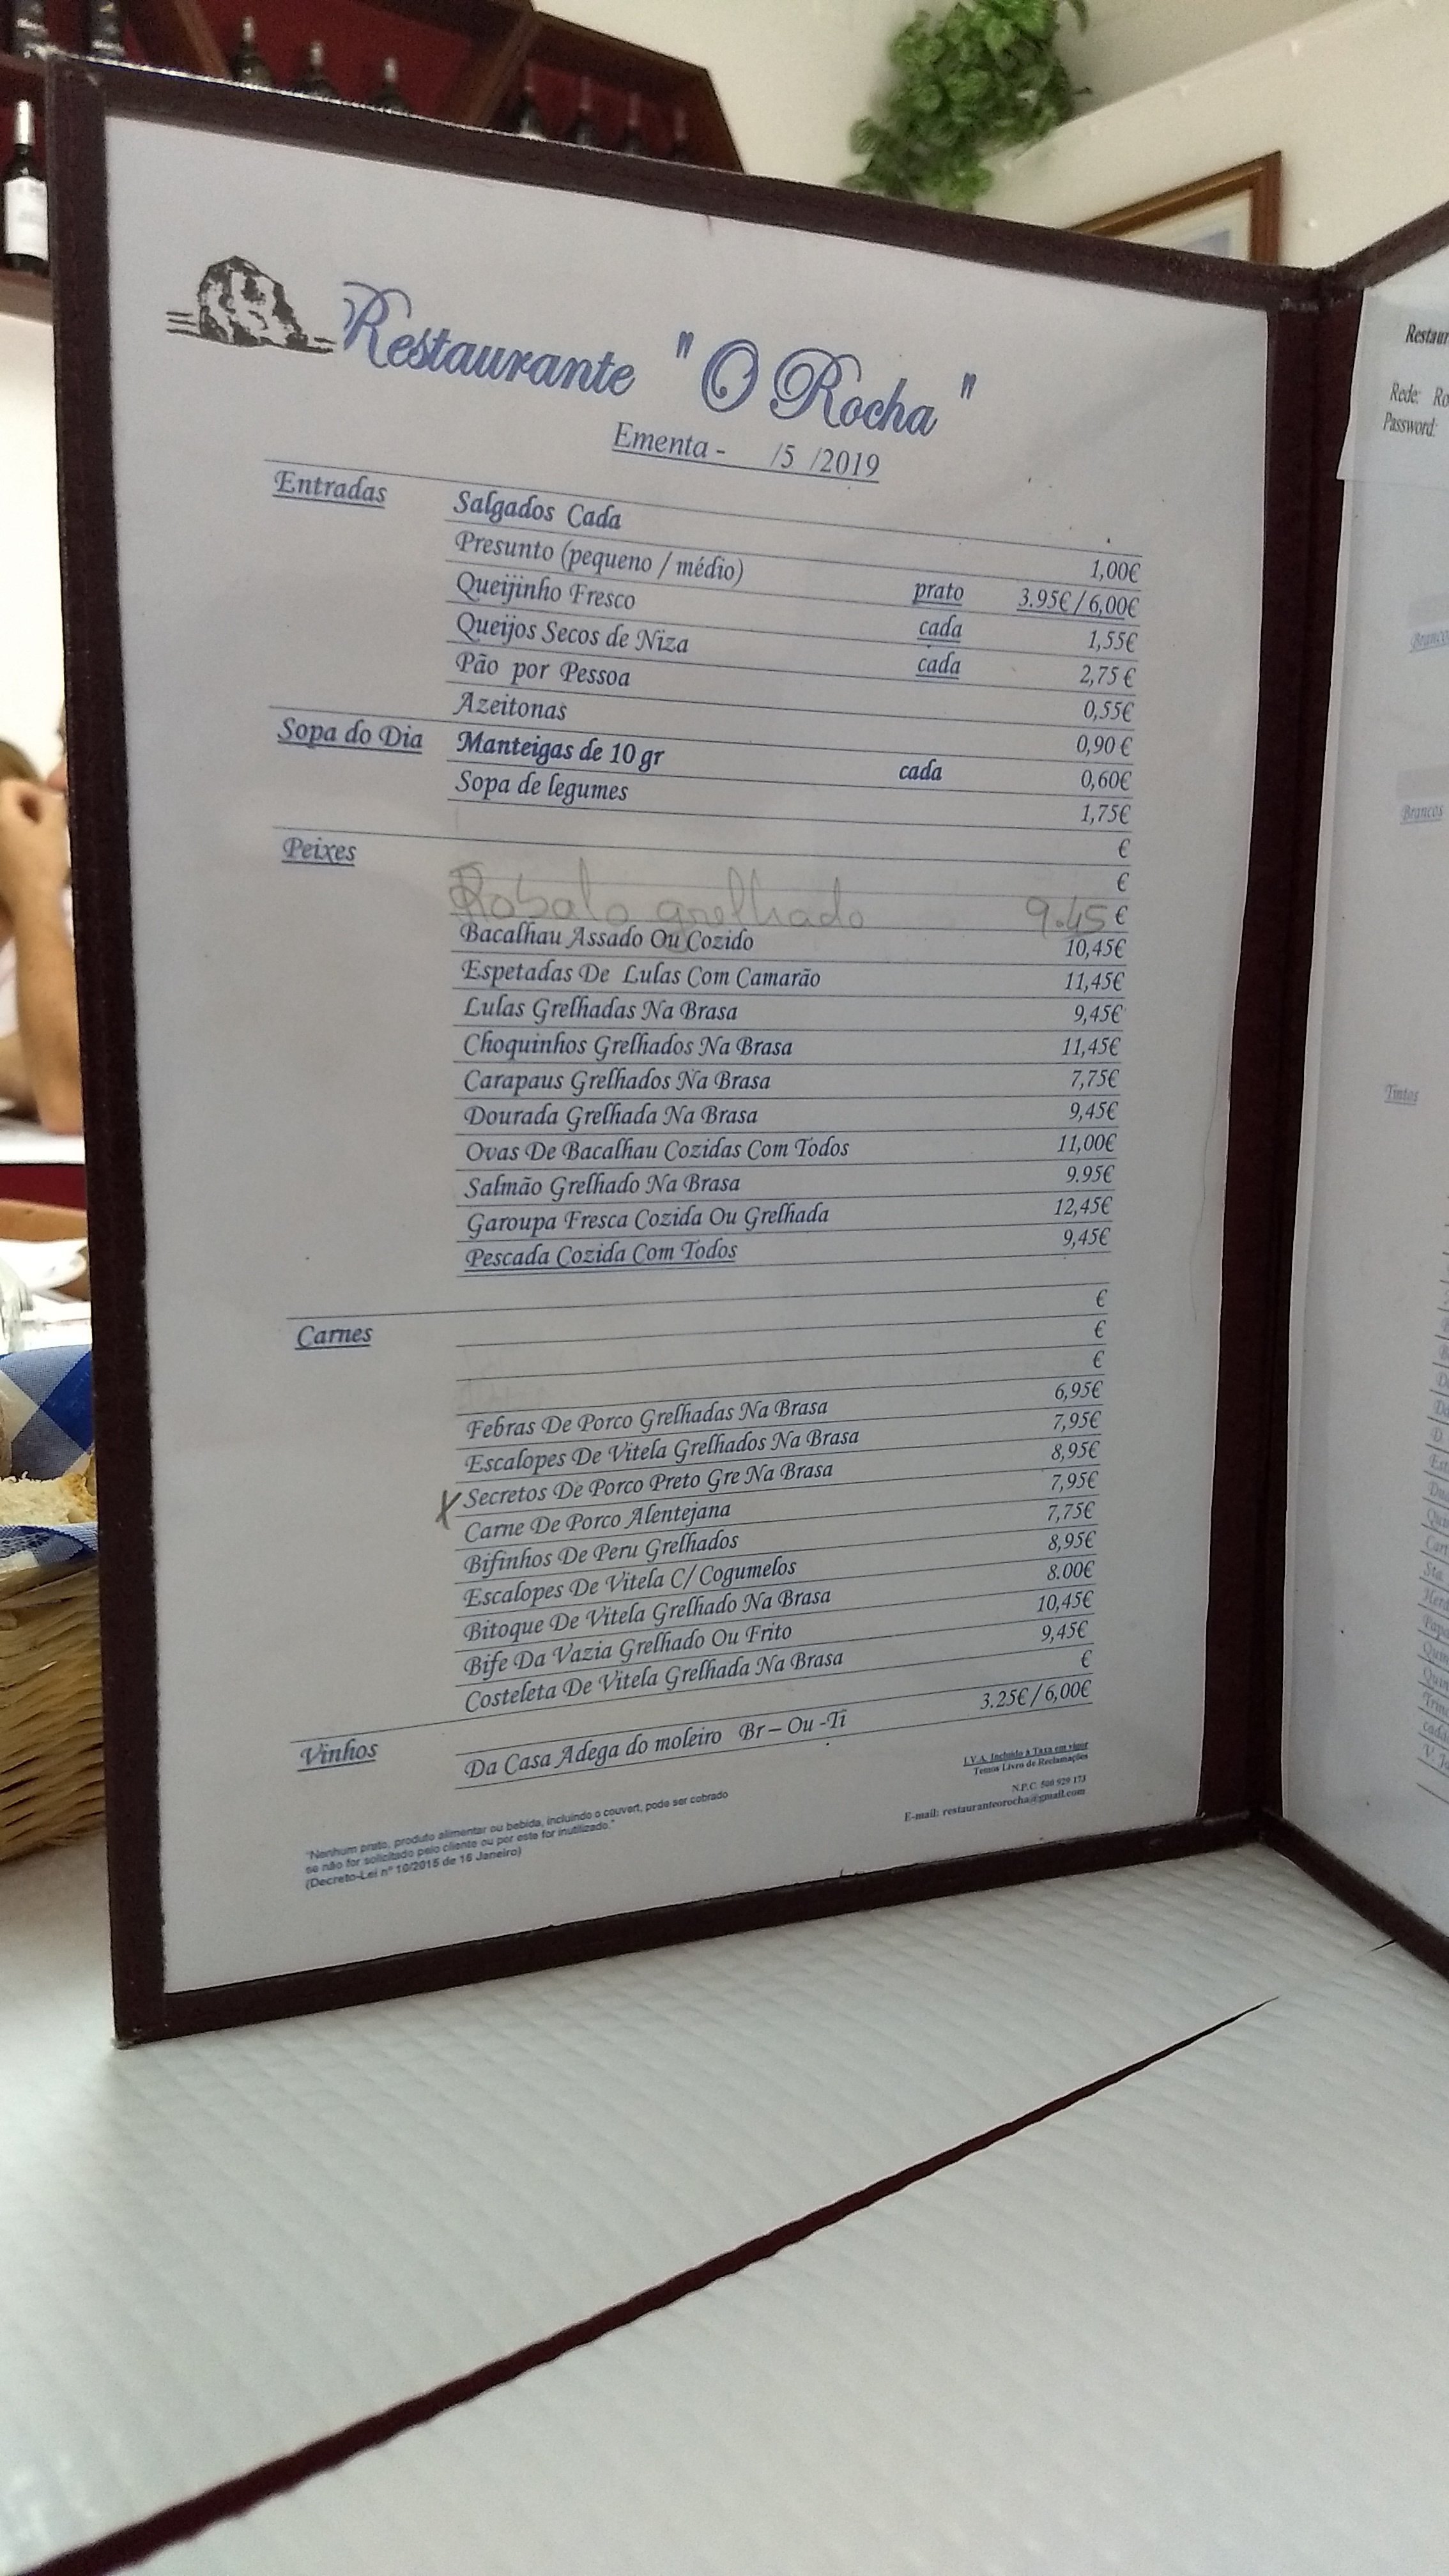 Restaurante "O Rocha"
Ementa - /5 /2019
Entradas
Salgados Cada 1,00€
Presunto (pequeno / médio) prato 3.95€ / 6,00€
Queijinho Fresco cada 1,55€
Queijos Secos de Niza cada 2,75 €
Pão por Pessoa 0,55€
Azeitonas 0,90 €
Sopa do Dia Manteigas de 10 gr cada 0,60€
Sopa de legumes 1,75€
Peixes €
€
Robalo grelhado 9.45 €
Bacalhau Assado Ou Cozido 10,45€
Espetadas De Lulas Com Camarão 11,45€
Lulas Grelhadas Na Brasa 9,45€
Choquinhos Grelhados Na Brasa 11,45€
Carapaus Grelhados Na Brasa 7,75€
Dourada Grelhada Na Brasa 9,45€
Ovas De Bacalhau Cozidas Com Todos 11,00€
Salmão Grelhado Na Brasa 9.95€
Garoupa Fresca Cozida Ou Grelhada 12,45€
Pescada Cozida Com Todos 9,45€
Carnes €
€
€
Febras De Porco Grelhadas Na Brasa 6,95€
Escalopes De Vitela Grelhados Na Brasa 7,95€
X Secretos De Porco Preto Gre Na Brasa 8,95€
Carne De Porco Alentejana 7,95€
Bifinhos De Peru Grelhados 7,75€
Escalopes De Vitela C/ Cogumelos 8,95€
Bitoque De Vitela Grelhado Na Brasa 8.00€
Bife Da Vazia Grelhado Ou Frito 10,45€
Costeleta De Vitela Grelhada Na Brasa 9,45€
€
Vinhos Da Casa Adega do moleiro Br – Ou -Ti 3.25€ / 6,00€
I.V.A. Incluido à Taxa em vigor
Temos Livro de Reclamações
N.P.C. 500 929 173
E-mail: restauranteorocha@gmail.com
"Nenhum prato, produto alimentar ou bebida, incluindo o couvert, pode ser cobrado
se não for solicitado pelo cliente ou por este for inutilizado."
(Decreto-Lei nº 10/2015 de 16 Janeiro)
Restaur
Rede: Ro
Password:
Branco
Brancos
Tintos